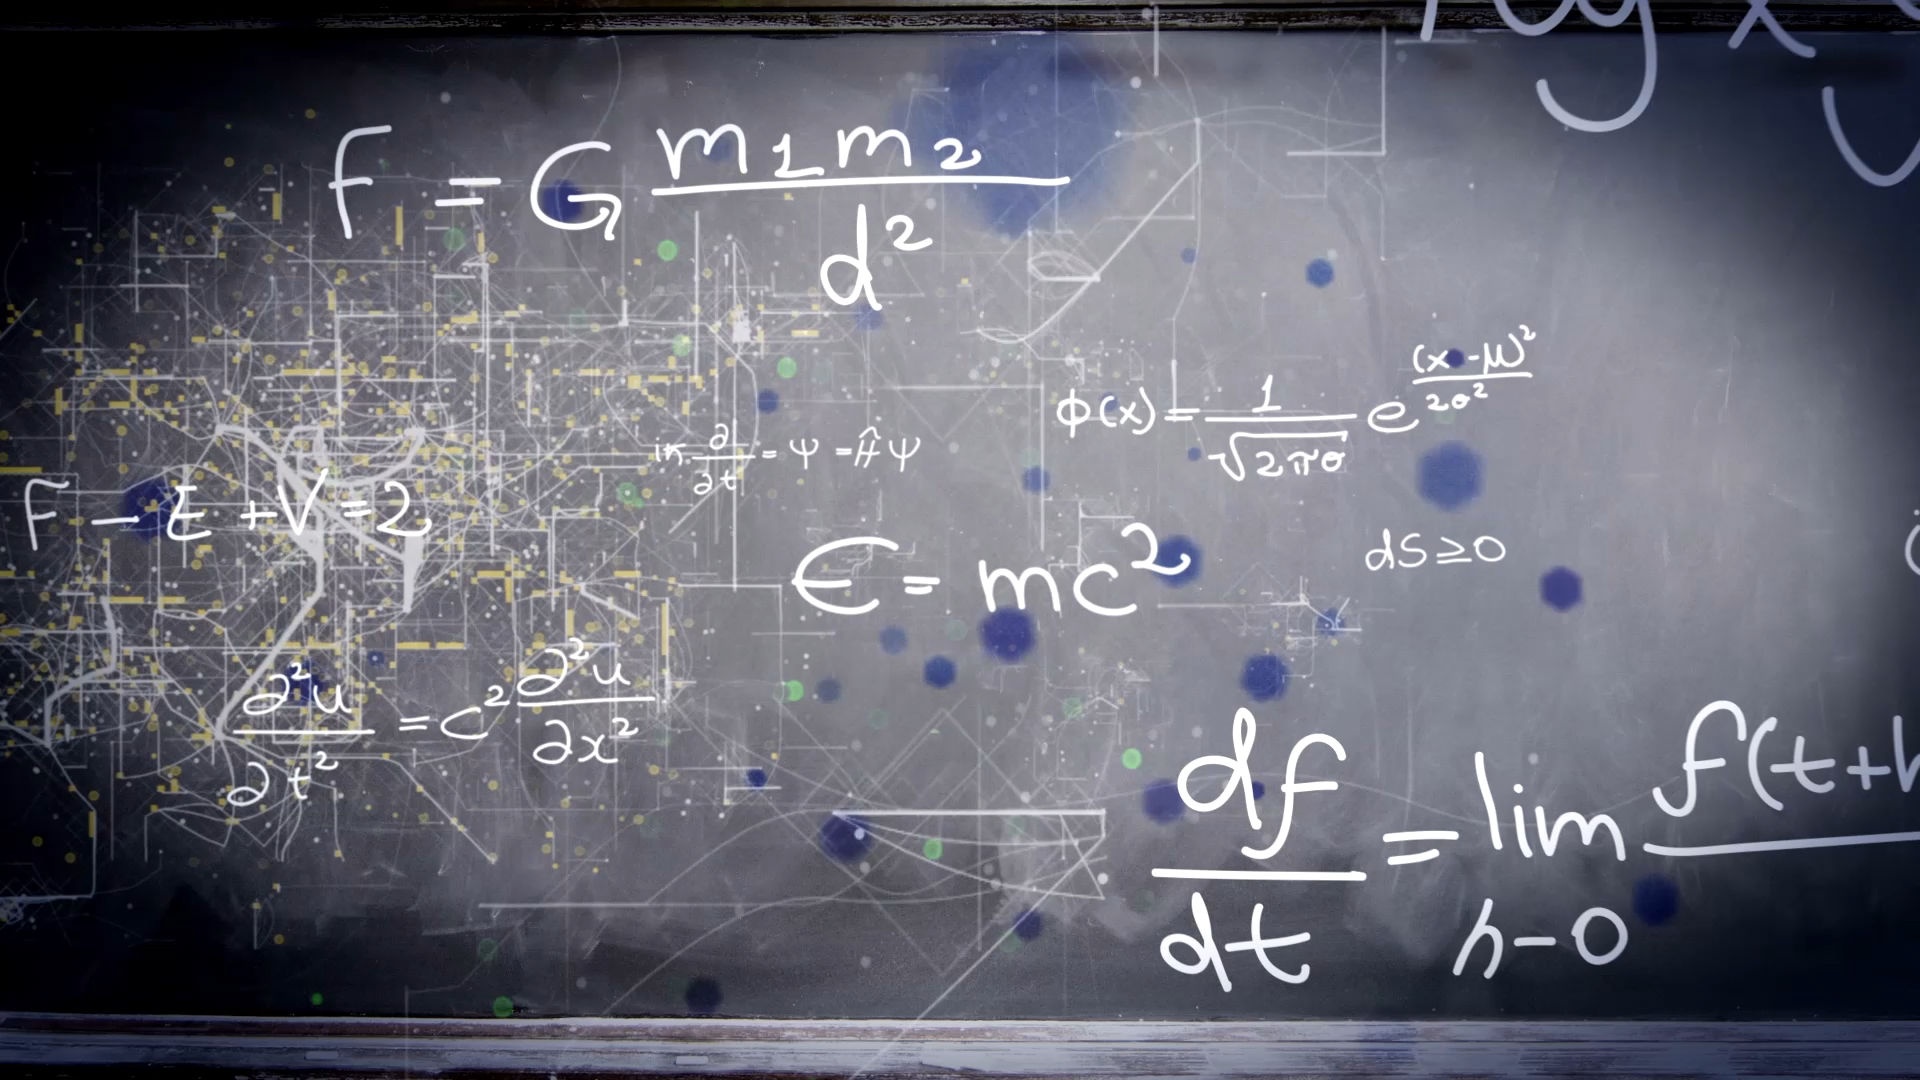 F = G m₁m₂ / d²
ϕ(x) = 1 / √2πσ e (x-μ)² / 2σ²
iħ ∂ / ∂t = Ψ = Ĥ Ψ
F - E + V = 2
E = mc²
dS ≥ 0
∂²u / ∂t² = c² ∂²u / ∂x²
df / dt = lim h-0 f(t+h